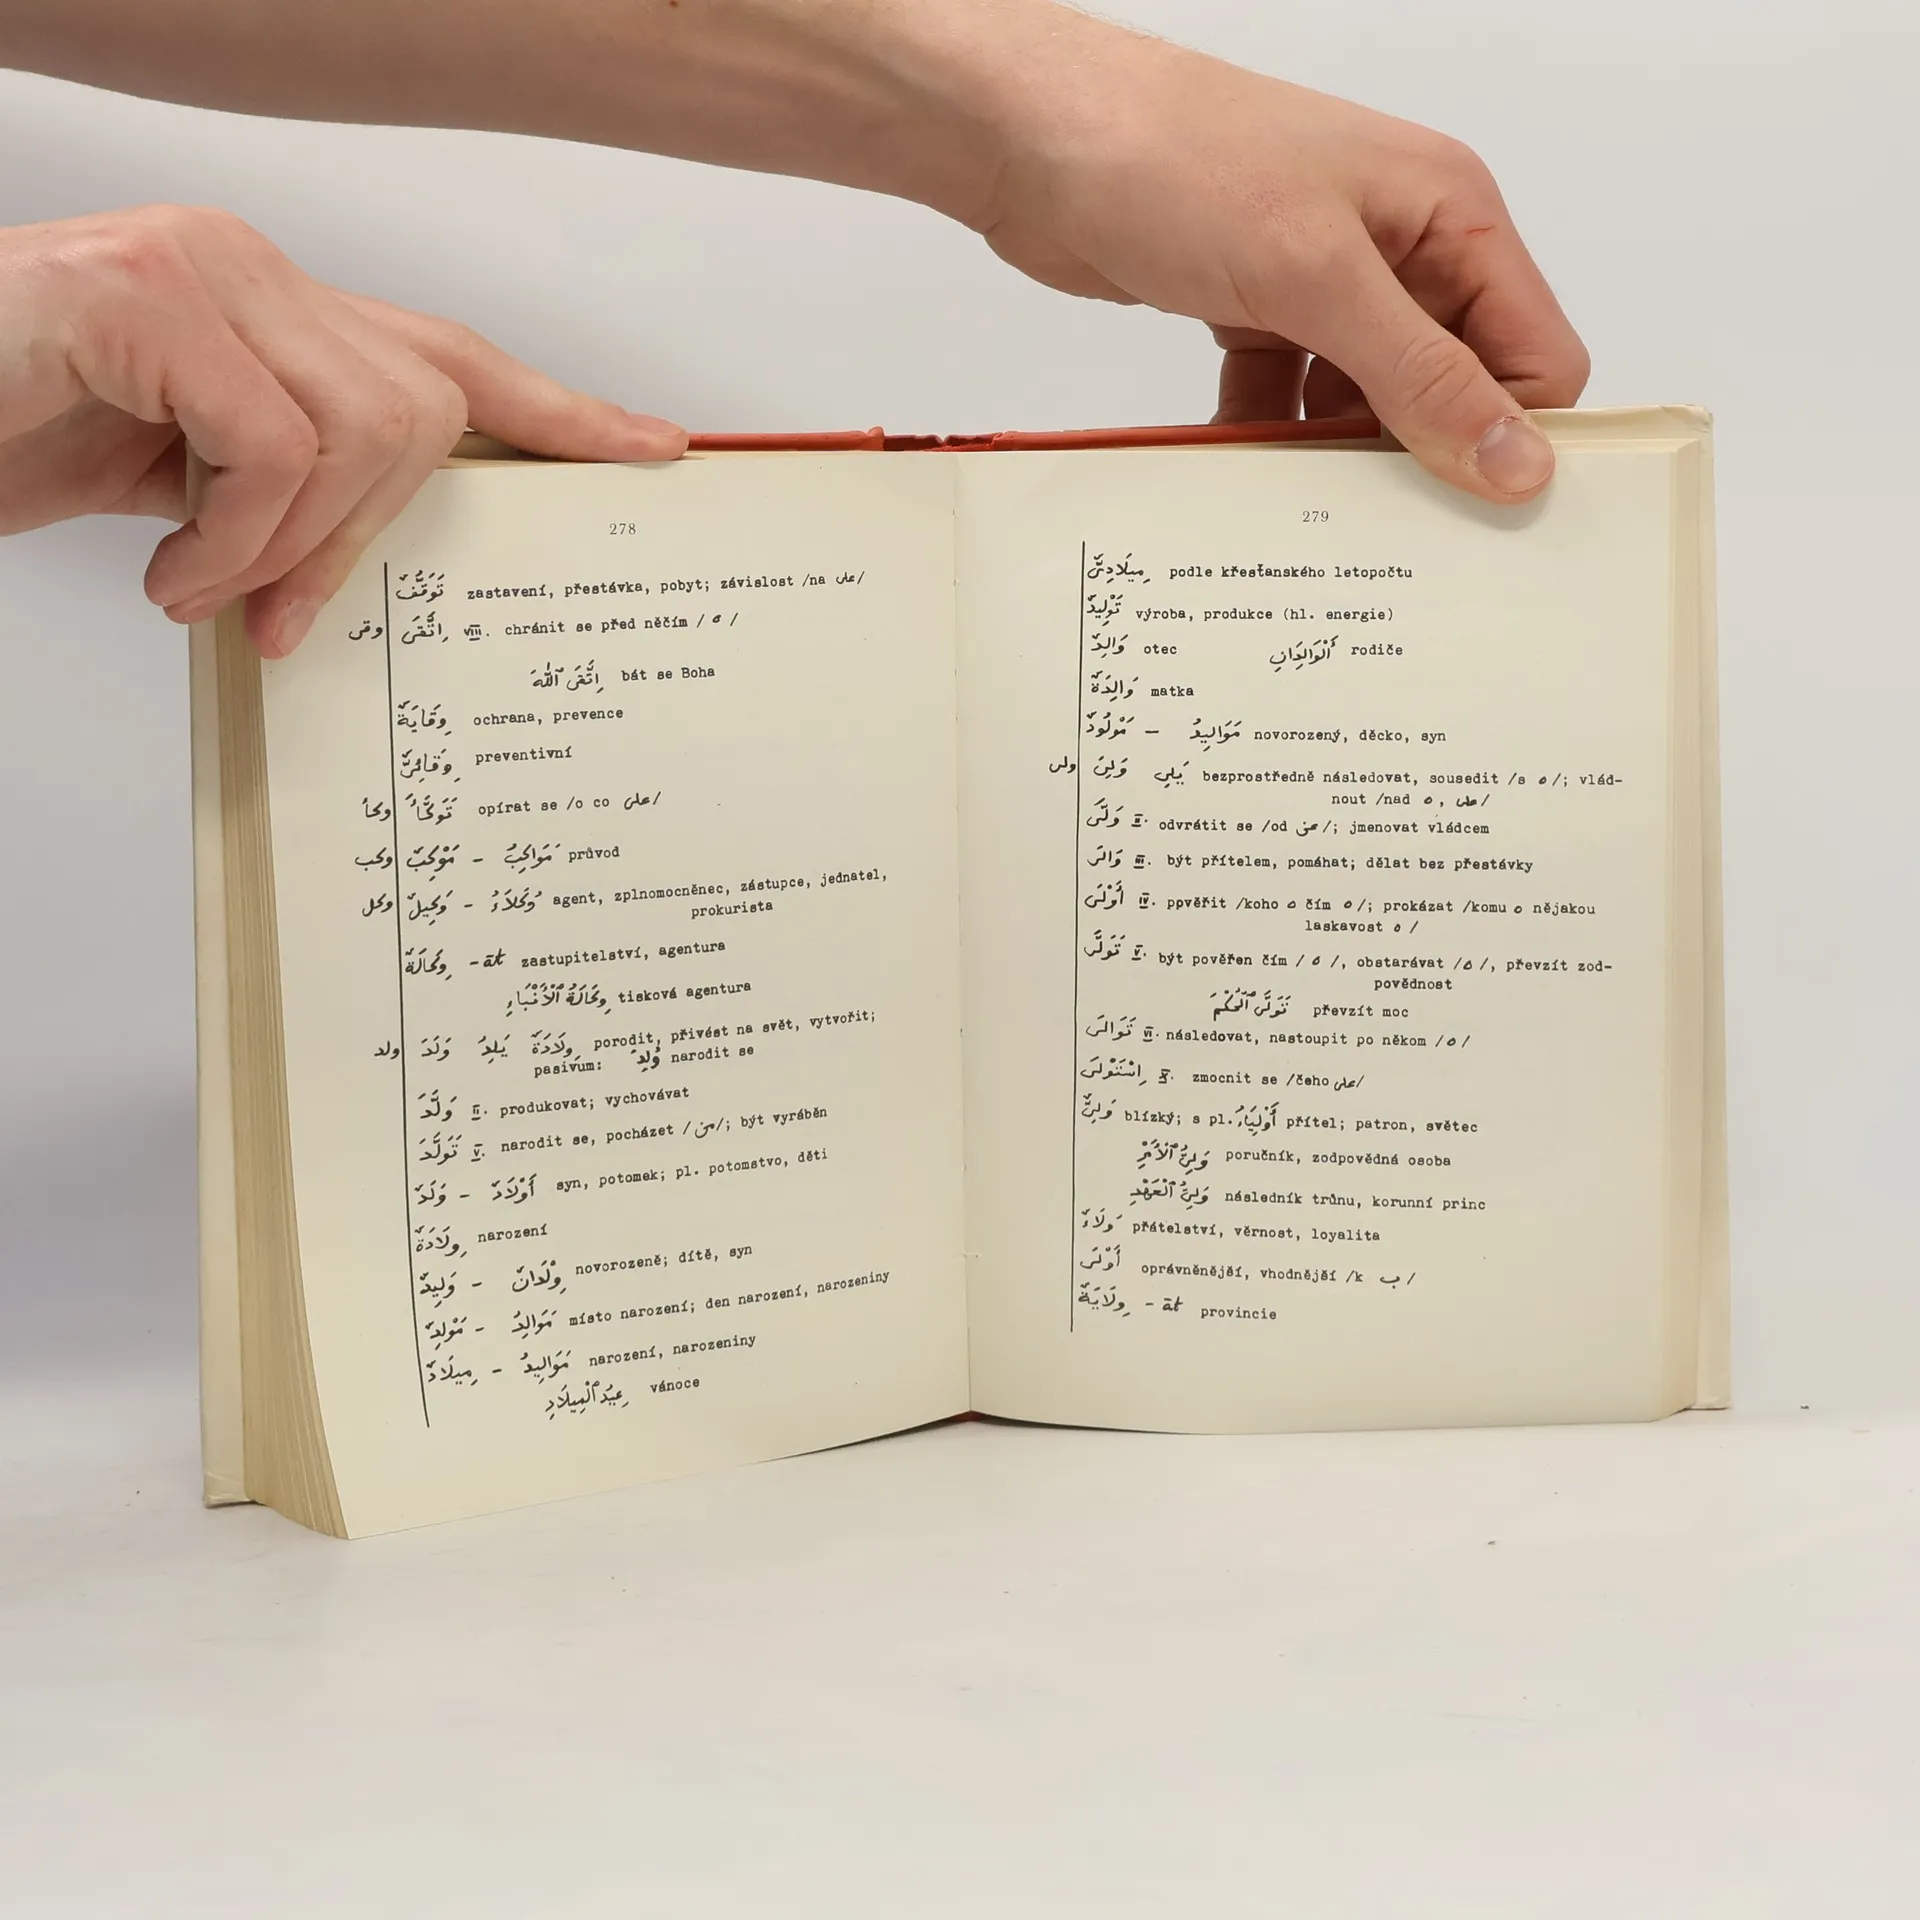 278
تَوَقُّفٌ zastavení, přestávka, pobyt; závislost /na على/
وقى اِتَّقَى VIII. chránit se před něčím /ه/
اِتَّقَى ٱللّٰهَ bát se Boha
وِقَايَةٌ ochrana, prevence
وِقَائِىٌّ preventivní
وكأ تَوَكَّأَ opírat se /o co على/
وكب مَوْكِبٌ – مَوَاكِبُ průvod
وكل وَكِيلٌ – وُكَلَاءُ agent, zplnomocněnec, zástupce, jednatel,
prokurista
وِكَالَةٌ -āt zastupitelství, agentura
وِكَالَةُ ٱلْأَنْبَاءِ tisková agentura
ولد وَلَدَ يَلِدُ وِلَادَةٌ porodit, přivést na svět, vytvořit;
pasivum: وُلِدَ narodit se
وَلَّدَ II. produkovat; vychovávat
تَوَلَّدَ V. narodit se, pocházet /من/; být vyráběn
وَلَدٌ – أَوْلَادٌ syn, potomek; pl. potomstvo, děti
وِلَادَةٌ narození
وَلِيدٌ – وِلْدَانٌ novorozeně; dítě, syn
مَوْلِدٌ – مَوَالِدُ místo narození; den narození, narozeniny
مِيلَادٌ – مَوَالِيدُ narození, narozeniny
عِيدُ ٱلْمِيلَادِ vánoce
279
مِيلَادِىٌّ podle křesťanského letopočtu
تَوْلِيدٌ výroba, produkce (hl. energie)
وَالِدٌ otec أَلْوَالِدَانِ rodiče
وَالِدَةٌ matka
مَوْلُودٌ – مَوَالِيدُ novorozený, děcko, syn
ولى وَلِىَ يَلِي bezprostředně následovat, sousedit /s ه/; vlád-
nout /nad ه, على/
وَلَّى II. odvrátit se /od عن/; jmenovat vládcem
وَالَى III. být přítelem, pomáhat; dělat bez přestávky
أَوْلَى IV. ppvěřit /koho ه čím ه/; prokázat /komu ه nějakou
laskavost ه/
تَوَلَّى V. být pověřen čím /ه/, obstarávat /ه/, převzít zod-
povědnost
تَوَلَّى ٱلْحُكْمَ převzít moc
تَوَالَى VI. následovat, nastoupit po někom /ه/
اِسْتَوْلَى X. zmocnit se /čeho على/
وَلِىٌّ blízký; s pl. أَوْلِيَاءُ přítel; patron, světec
وَلِىُّ ٱلْأَمْرِ poručník, zodpovědná osoba
وَلِىُّ ٱلْعَهْدِ následník trůnu, korunní princ
وَلَاءٌ přátelství, věrnost, loyalita
أَوْلَى oprávněnější, vhodnější /k ب/
وِلَايَةٌ -āt provincie